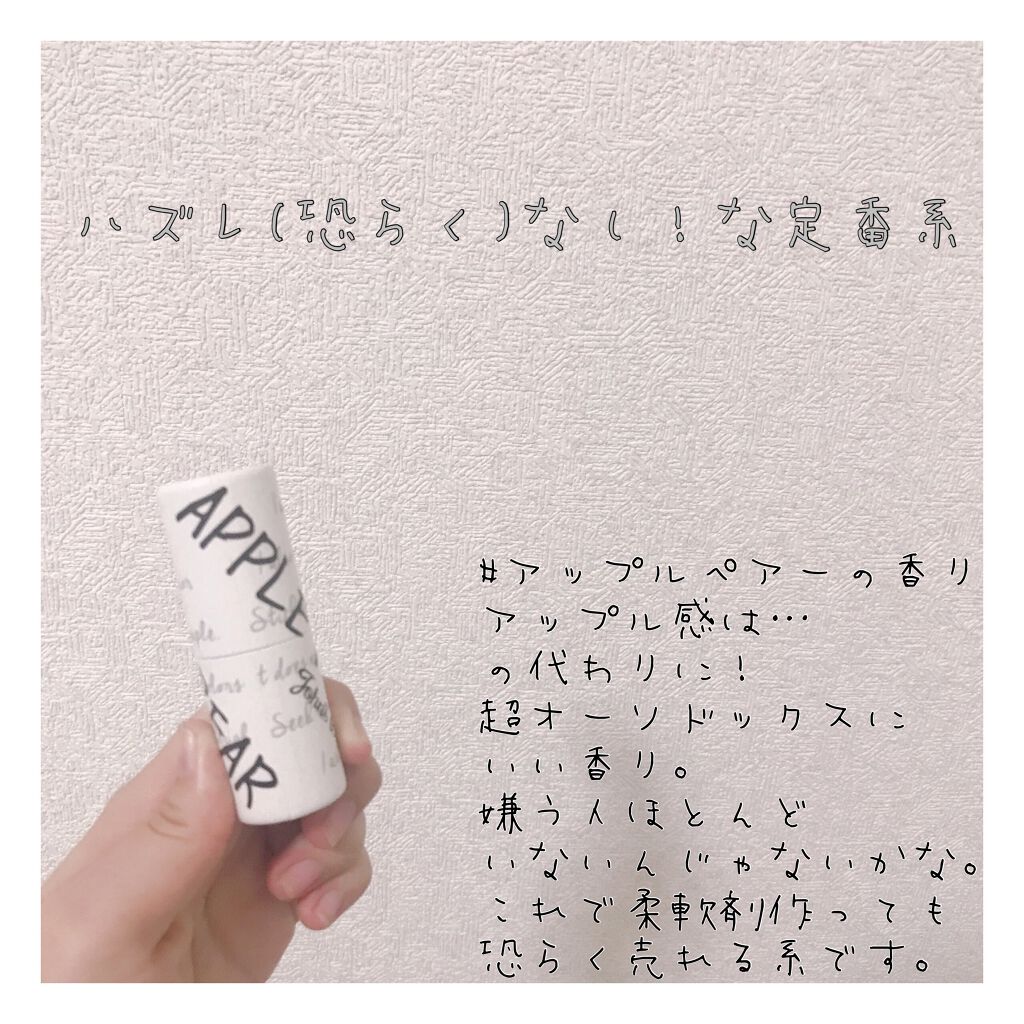 ハズレ(恐らく)なし!な定番系
APPLE
PEAR
#アップルペアーの香り
アップル感は…
の代わりに!
超オーソドックスに
いい香り。
嫌う人ほとんど
いないんじゃないかな。
これで柔軟剤作っても
恐らく売れる系です。